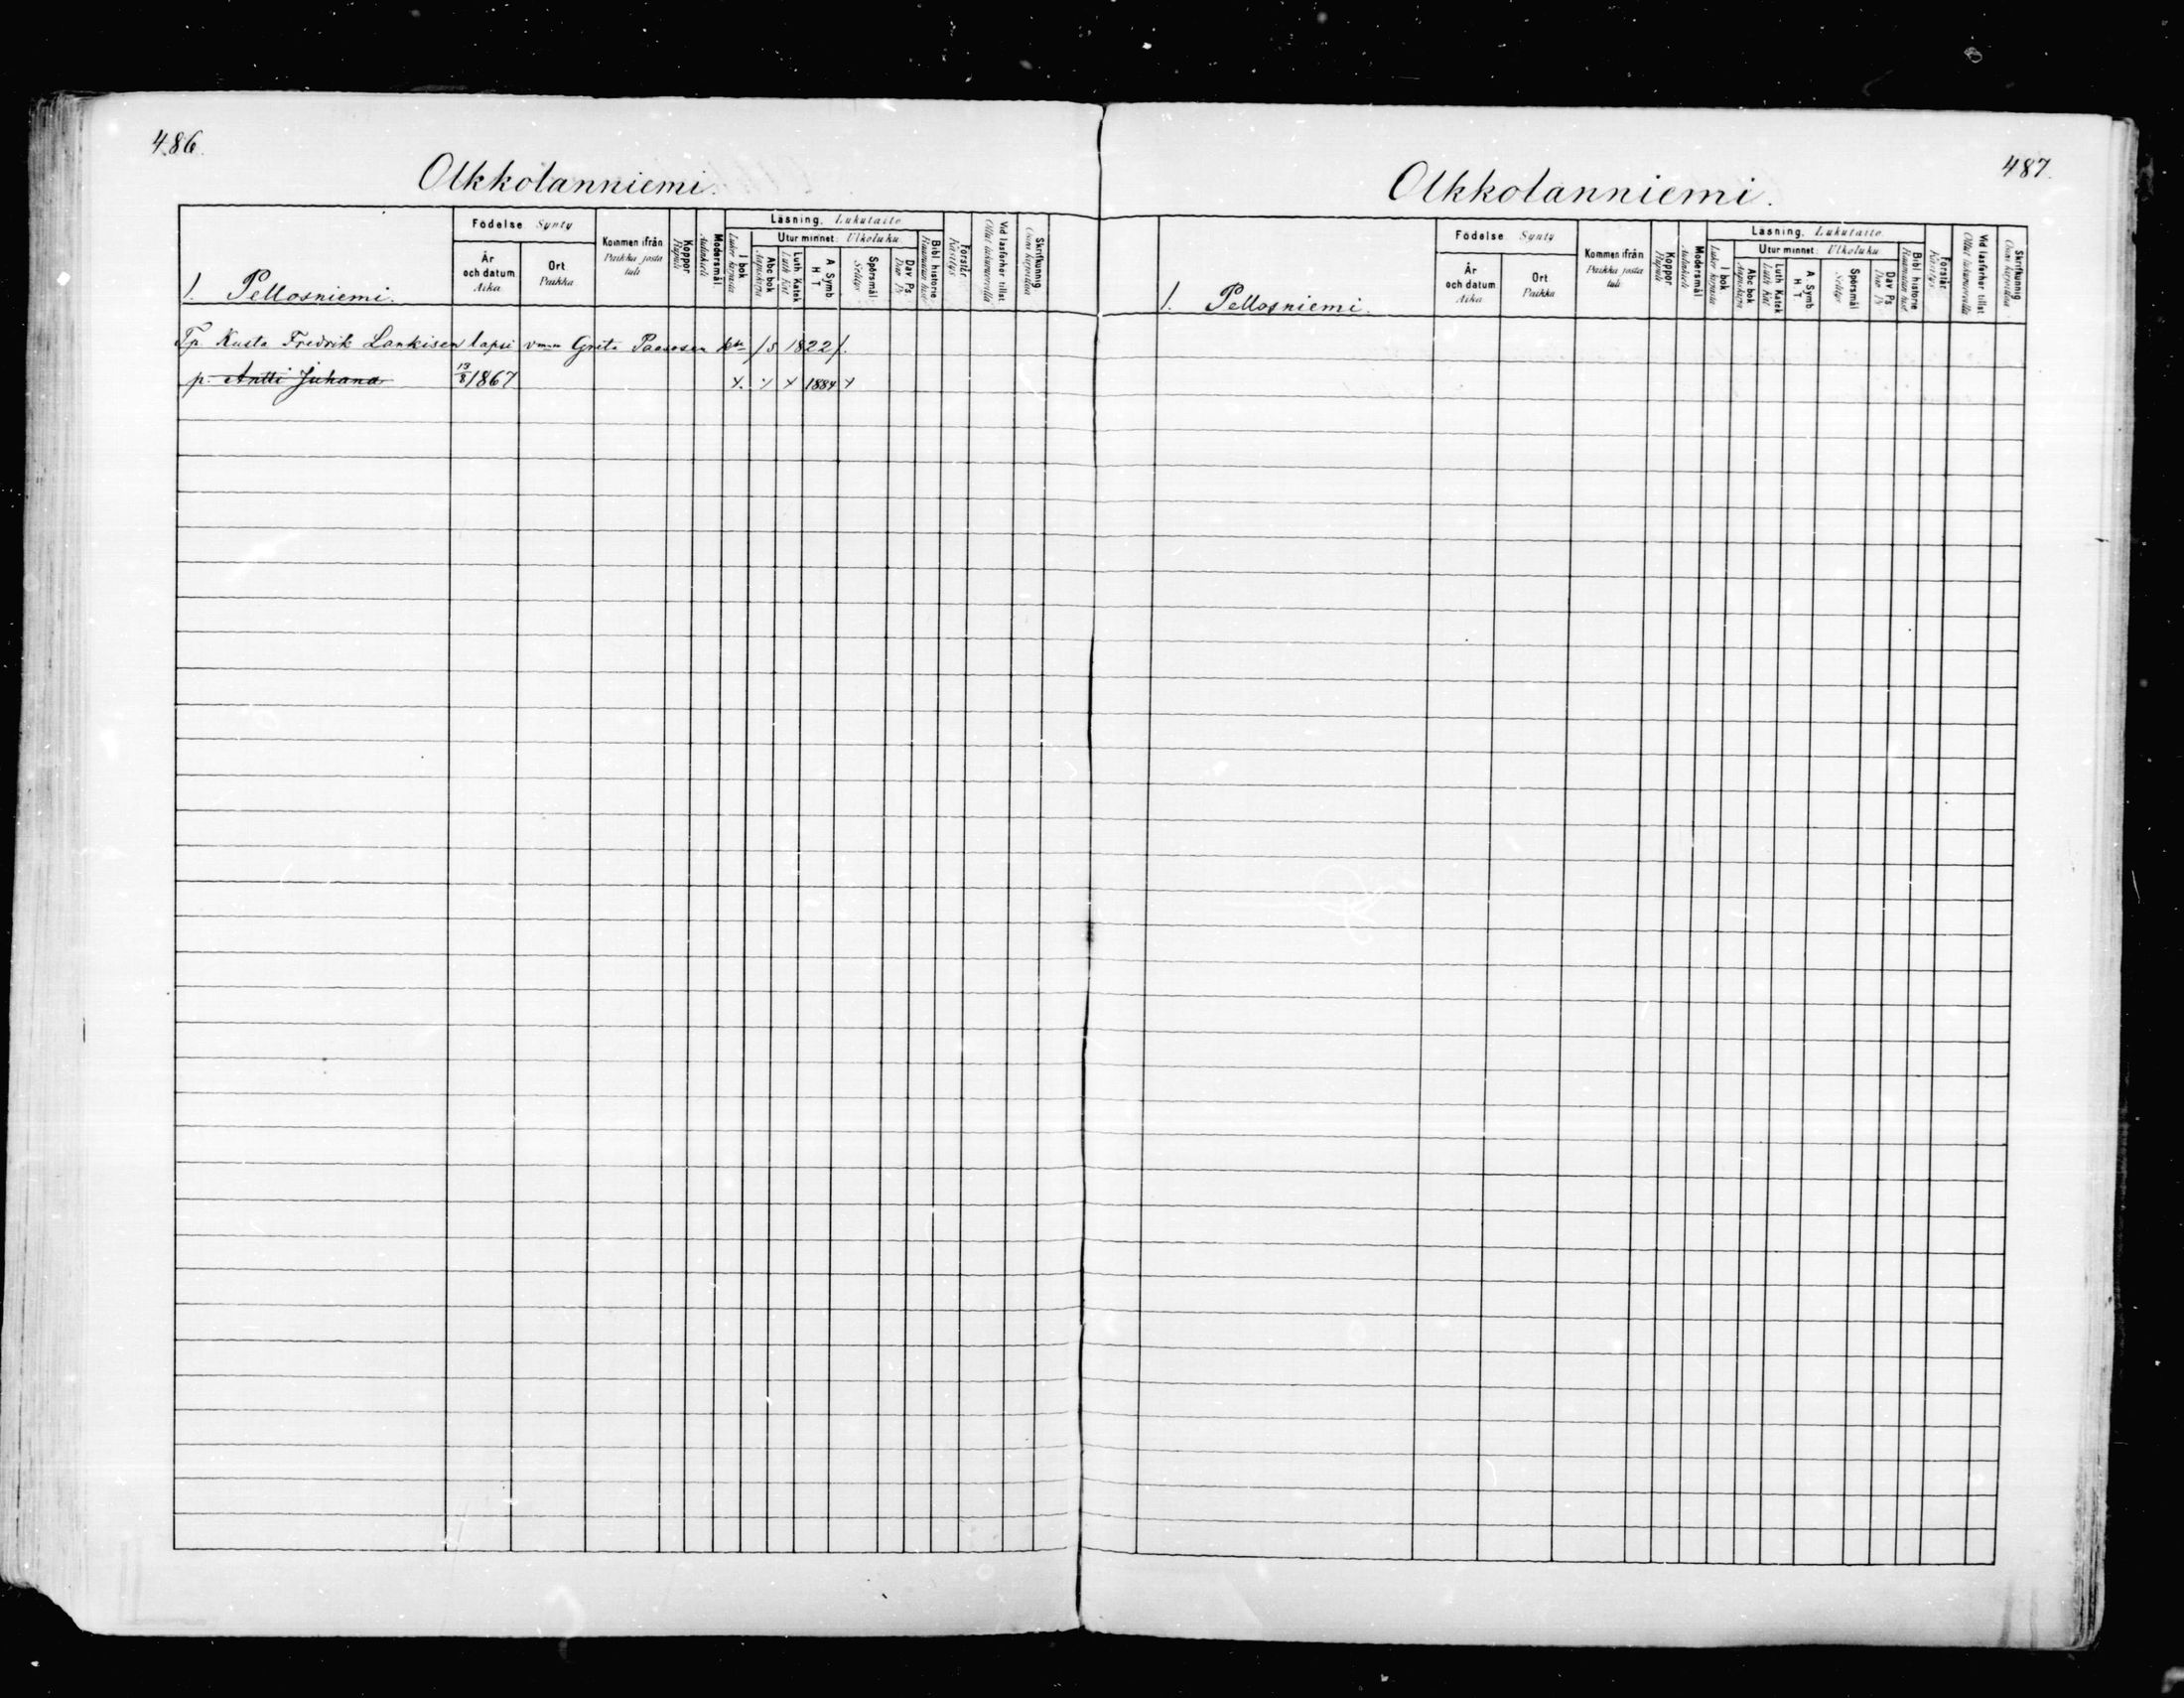 486.
Olkkolanniemi.
Födelse Synty
Kommen ifrån
Paikka josta
tuli
Koppor
Rupuli
Modersmål.
Äidinkieli
Läsning. Lukutaito
I bok
Lukee kirjasta
Utur minnet: Ulkoluku
Abc bok
Aapiskirja
Luth Katek
Luth Kat
A Symb
H T
Spörsmål
Selitys
Dav Ps
Dav Ps
Bibl. historie
Förstår
Käsitys
Vid läsförhör tillst
Ollut lukuvuorolla
Skrifkunnig
Osaa kirjoittaa
År
och datum
Aika
Ort
Paikka
1. Pellosniemi.
Tp. Kusta Fredrik Lankisen lapsi Grita Paasosen /s 1822/.
p. Antti Juhana 13/8 1867 x. x x 1884 x
487.
Olkkolanniemi.
Födelse Synty
Kommen ifrån
Paikka josta
tuli
Koppor
Rupuli
Modersmål
Äidinkieli
Läsning. Lukutaito
I bok
Lukee kirjasta
Utur minnet: Ulkoluku
Abc bok
Aapiskirja
Luth Katek
Luth Kat
A Symb
H T
Spörsmål
Selitys
Dav Ps
Dav Ps
Bibl. historie
Förstår
Käsitys
Vid läsförhör tillst
Ollut lukuvuorolla
Skrifkunnig
Osaa kirjoittaa
År
och datum
Aika
Ort
Paikka
1. Pellosniemi.